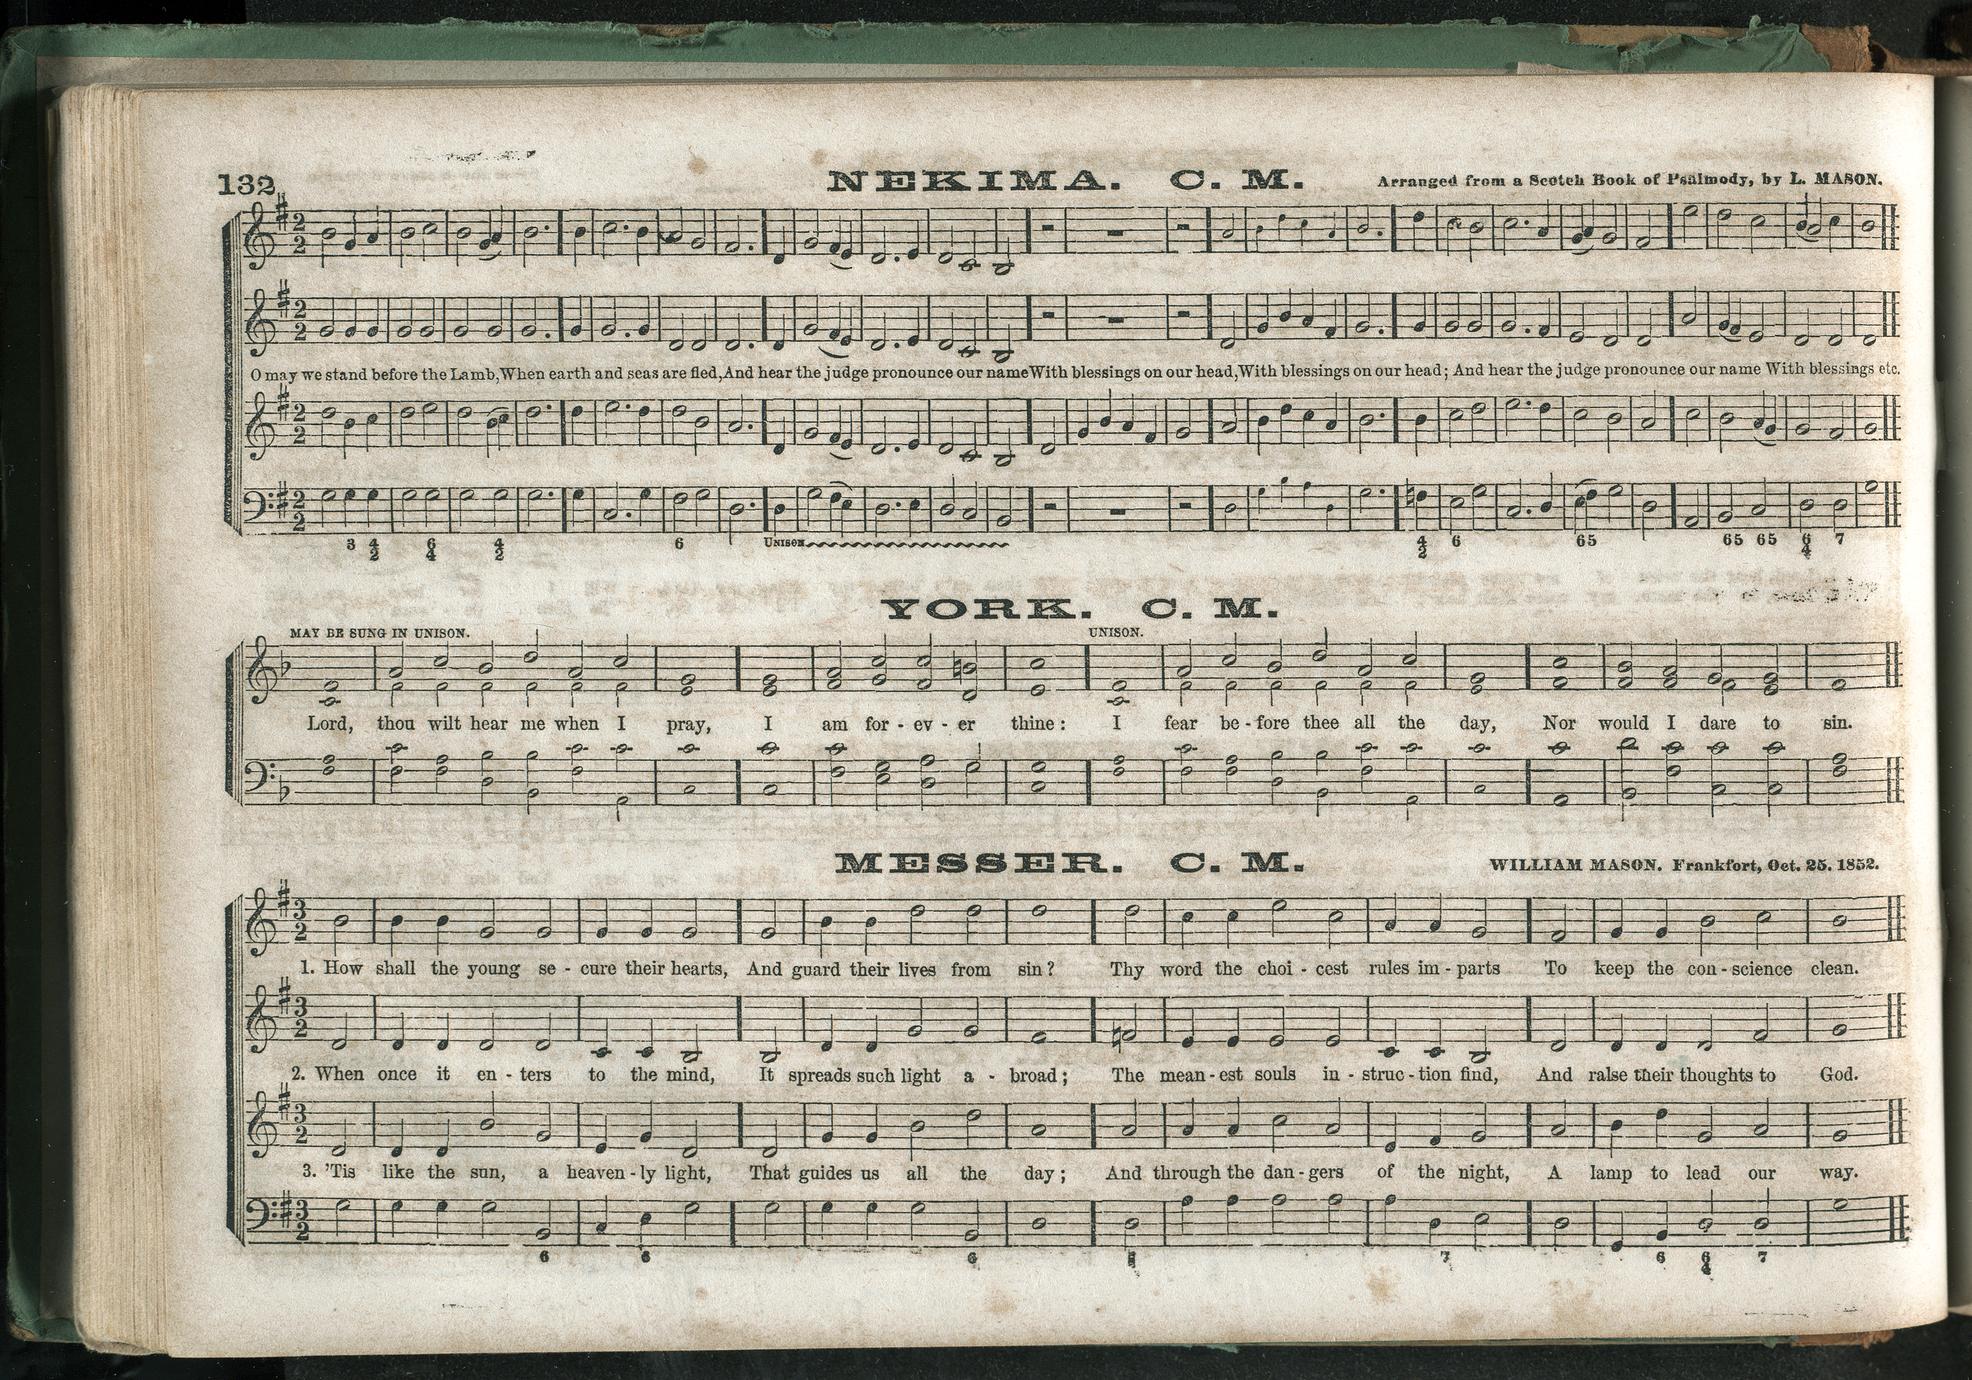 132
NEKIMA. C. M.
Arranged from a Scotch Book of Psalmody, by L. MASON.
O may we stand before the Lamb, When earth and seas are fled, And hear the judge pronounce our name With blessings on our head, With blessings on our head; And hear the judge pronounce our name With blessings etc.
3 4 2 6 4 4 2 6 UNISON 4 2 6 65 65 65 6 4 7
YORK. C. M.
MAY BE SUNG IN UNISON. UNISON.
Lord, thou wilt hear me when I pray, I am for - ev - er thine: I fear be - fore thee all the day, Nor would I dare to sin.
MESSER. C. M.
WILLIAM MASON. Frankfort, Oct. 25. 1852.
1. How shall the young se - cure their hearts, And guard their lives from sin? Thy word the choi - cest rules im - parts To keep the con - science clean.
2. When once it en - ters to the mind, It spreads such light a - broad; The mean - est souls in - struc - tion find, And raise their thoughts to God.
3. 'Tis like the sun, a heaven - ly light, That guides us all the day; And through the dan - gers of the night, A lamp to lead our way.
6 6 6 7 6 6 4 7